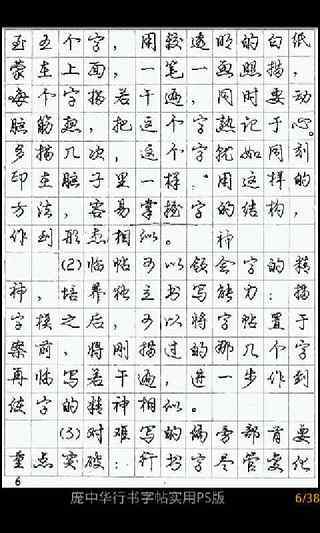 至五个字，用较透明的白纸
蒙在上面，一笔一画照描，
每个字描若干遍，同时要动
脑筋想，把这个字熟记于心。
多描几次，这个字就如同刻
印在脑子里一样，用这样的
方法，容易掌握字的结构，
作到形态相似。神
(2)临帖可以领会字的精
神，培养独立书写能力：描
字模之后，可以将字帖置于
案前，将刚描过的那几个字
再临写若干遍，进一步作到
使字的精神相似。
(3)对难写的偏旁部首要
重点突破：行书字尽管变化
6
庞中华行书字帖实用PS版
6/38